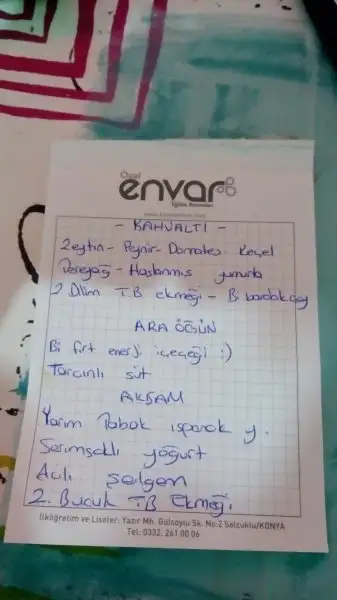 Özel
envar
Eğitim Kurumları
- KAHVALTI -
Zeytin - Peynir - Domates - Reçel
Tereyağ - Haşlanmış yumurta
2 Dilim T.B ekmeği - Bi bardak çay
ARA ÖĞÜN
Bi fırt enerji içeceği :)
Tarçınlı süt
AKŞAM
Yarım Tabak ıspanak y.
Sarımsaklı yoğurt
Acılı şalgam
2. Buçuk T.B Ekmeği
İlköğretim ve Liseler: Yazır Mh. Gülsoylu Sk. No:2 Selçuklu/KONYA
Tel: 0332. 261 00 06